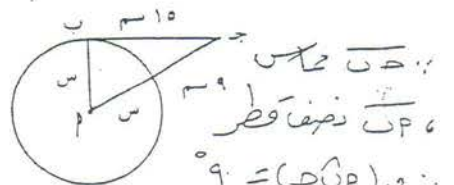 ب ١٥ سم جـ
س
٩ سم
م س
∵ جـ ب مماس
، م ب نصف قطر
∴ ق (م ب جـ) = ٩٠°